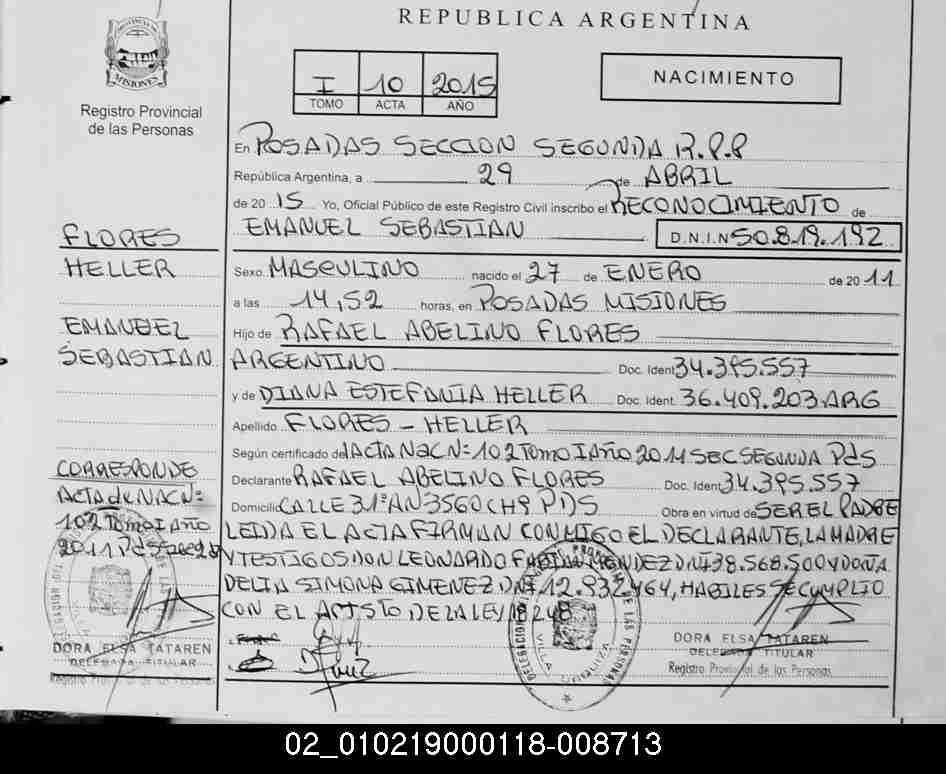 REPUBLICA ARGENTINA
PROVINCIA DE
MISIONES
Registro Provincial
de las Personas
I 10 2015
TOMO ACTA AÑO
NACIMIENTO
En POSADAS SECCION SEGUNDA R.P.P
República Argentina, a 29 de ABRIL
de 20 15 Yo, Oficial Público de este Registro Civil inscribo el RECONOCIMIENTO de
EMANUEL SEBASTIAN D.N.I.N 50.819.192
Sexo MASCULINO nacido el 27 de ENERO de 20 11
a las 14,52 horas, en POSADAS MISIONES
Hijo de RAFAEL ABELINO FLORES
ARGENTINO Doc. Ident 34.395.557
y de DIANA ESTEFANIA HELLER Doc. Ident. 36.409.203 ARG
Apellido FLORES - HELLER
Según certificado del ACTA NACN= 102 TOMO I AÑO 2011 SEC SEGUNDA PdS
Declarante RAFAEL ABELINO FLORES Doc. Ident 34.395.557
Domicilio CALLE 31ª AN 3560 CH9 PDS Obra en virtud de SER EL PADRE
LEIDA EL ACTA FIRMAN CONMIGO EL DECLARANTE, LA MADRE
Y TESTIGOS DON LEONARDO FABIAN MENDEZ DNI 38.568.500 Y DOÑA
DELIA SIMONA GIMENEZ DNI 12.832.464, HABILES SE CUMPLIO
CON EL ART 5TO DE LA LEY 18248
FLORES
HELLER
EMANUEL
SEBASTIAN
CORRESPONDE
ACTA de NACN=
102 TOMO I AÑO
2011 PdS
DORA ELSA TATAREN
DELEGADA TITULAR
Registro Provincial de las Personas
DELEGACION
VILLA URQUIZA
DE LAS PERSONAS
DORA ELSA TATAREN
DELEGADA TITULAR
Registro Provincial de las Personas
02_010219000118-008713